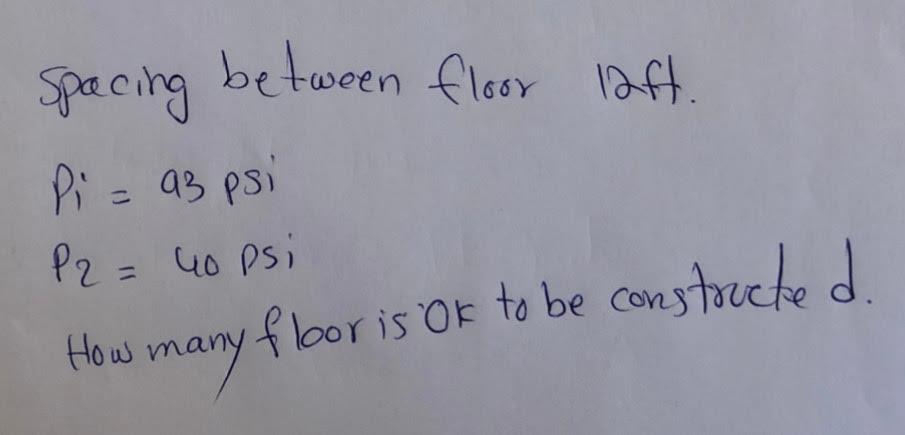 Spacing between floor 12ft.
Pi = 93 psi
P2 = 40 psi
How many floor is OK to be constructed.